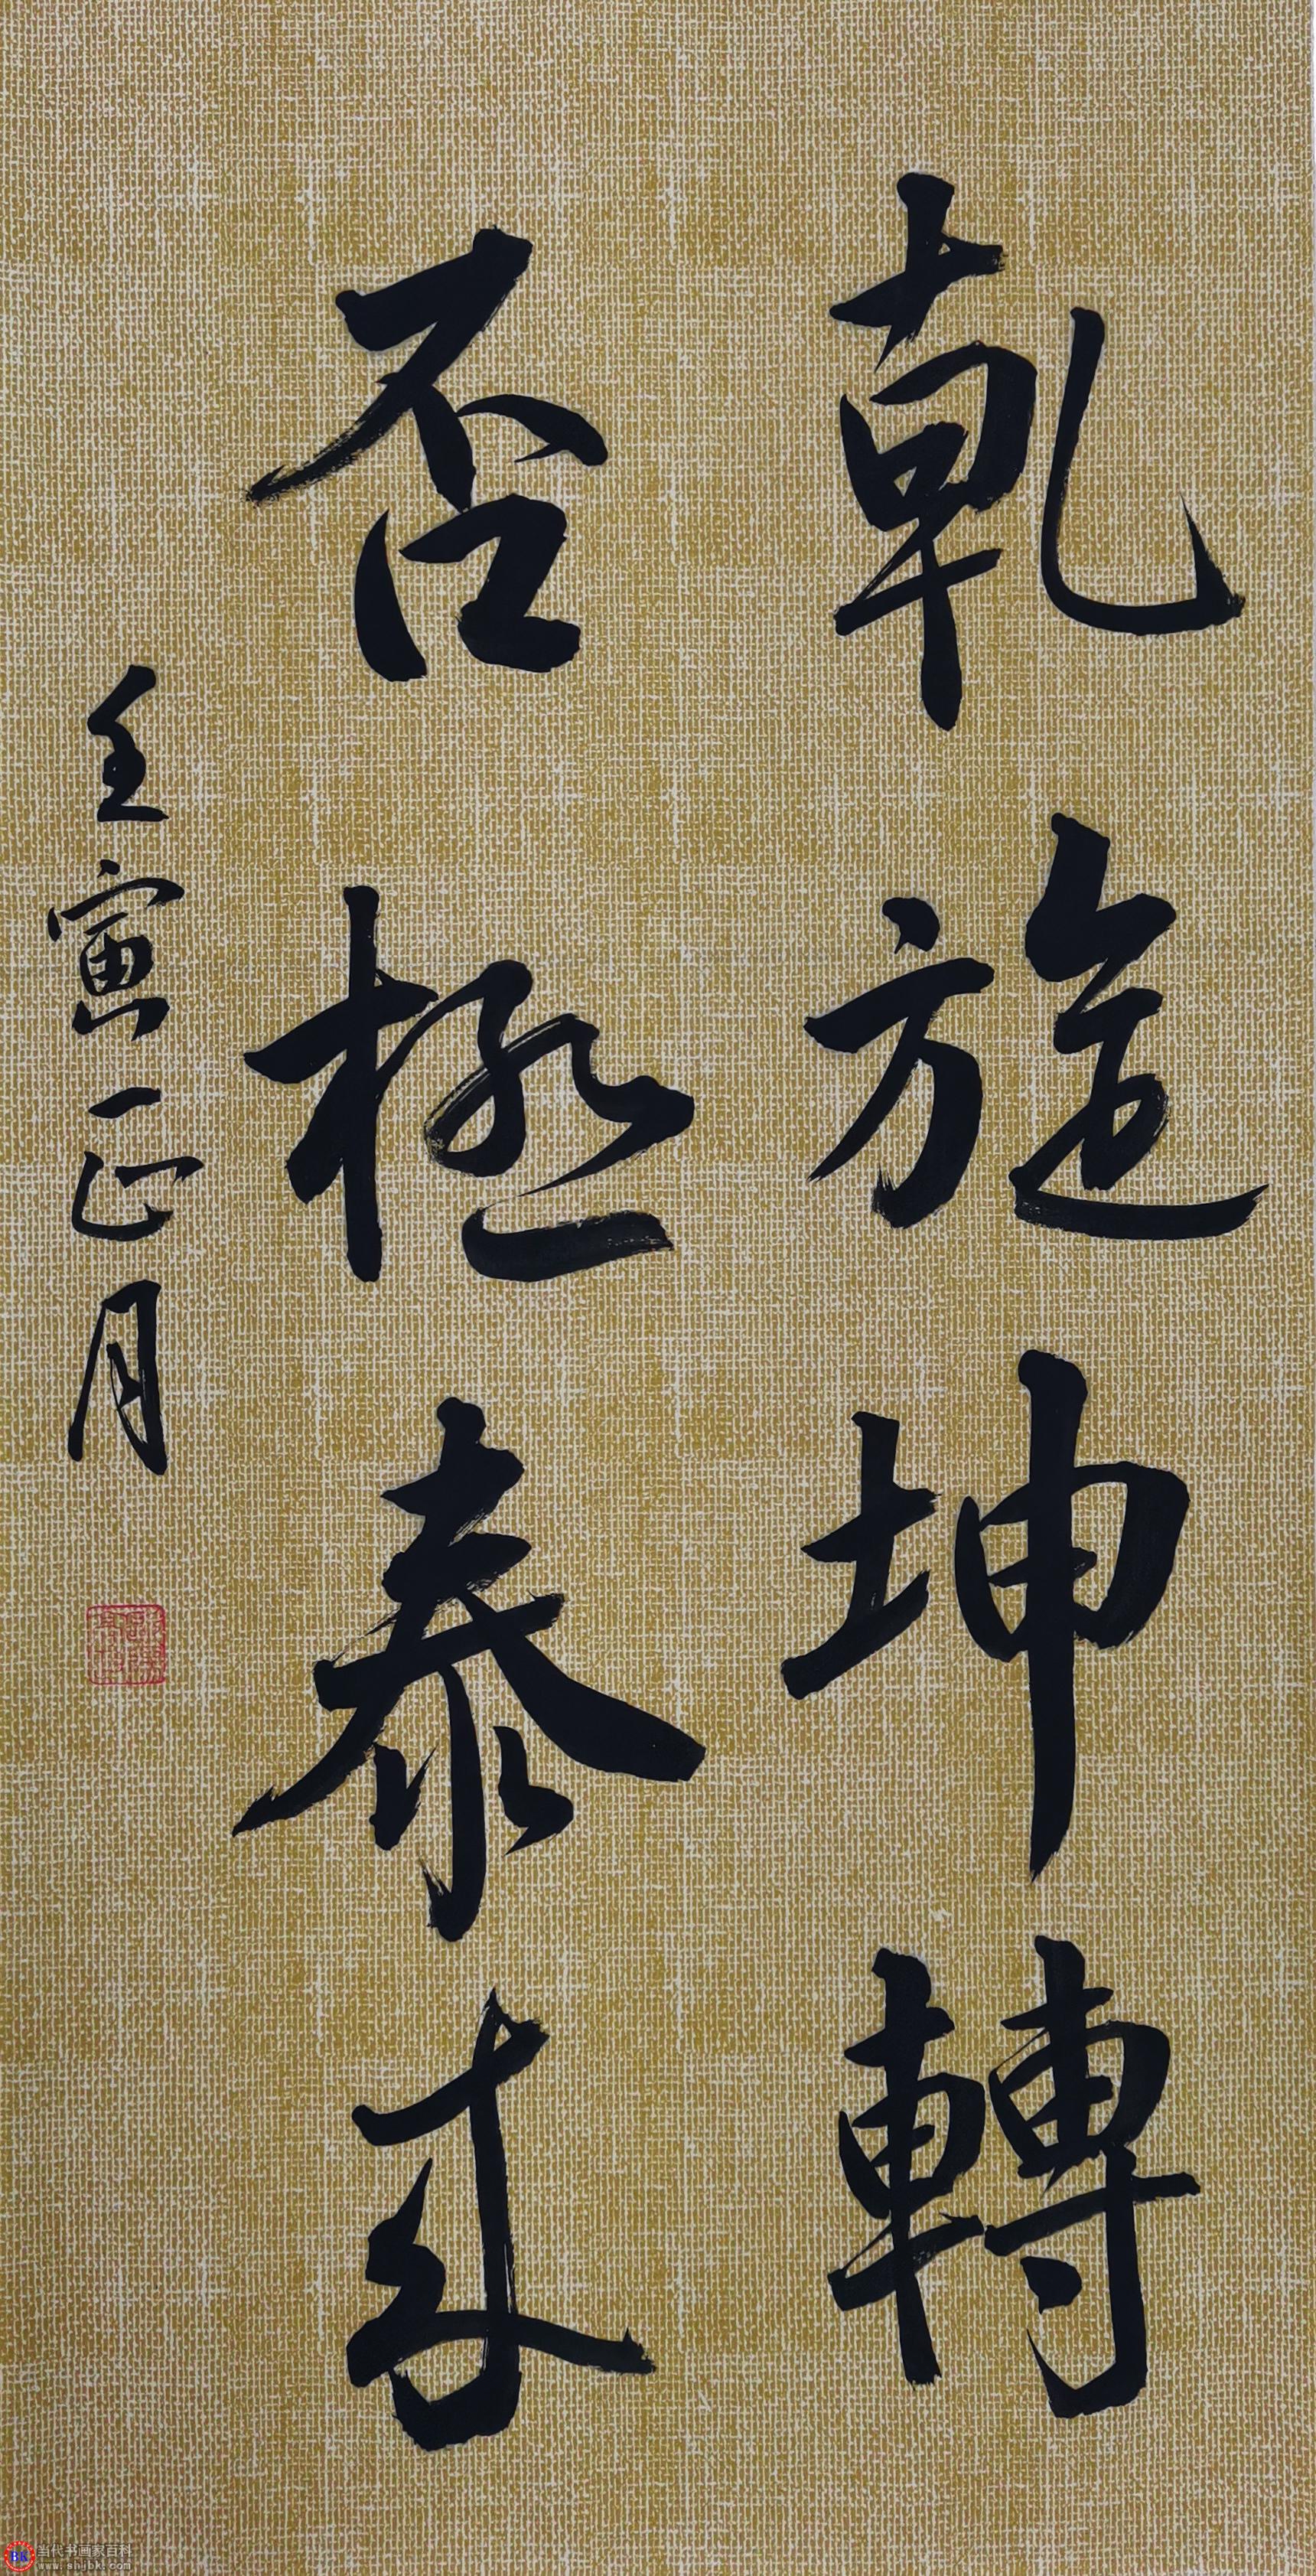 乾旋坤轉
否極泰來
壬寅正月
当代书画家百科
www.shjbk.com